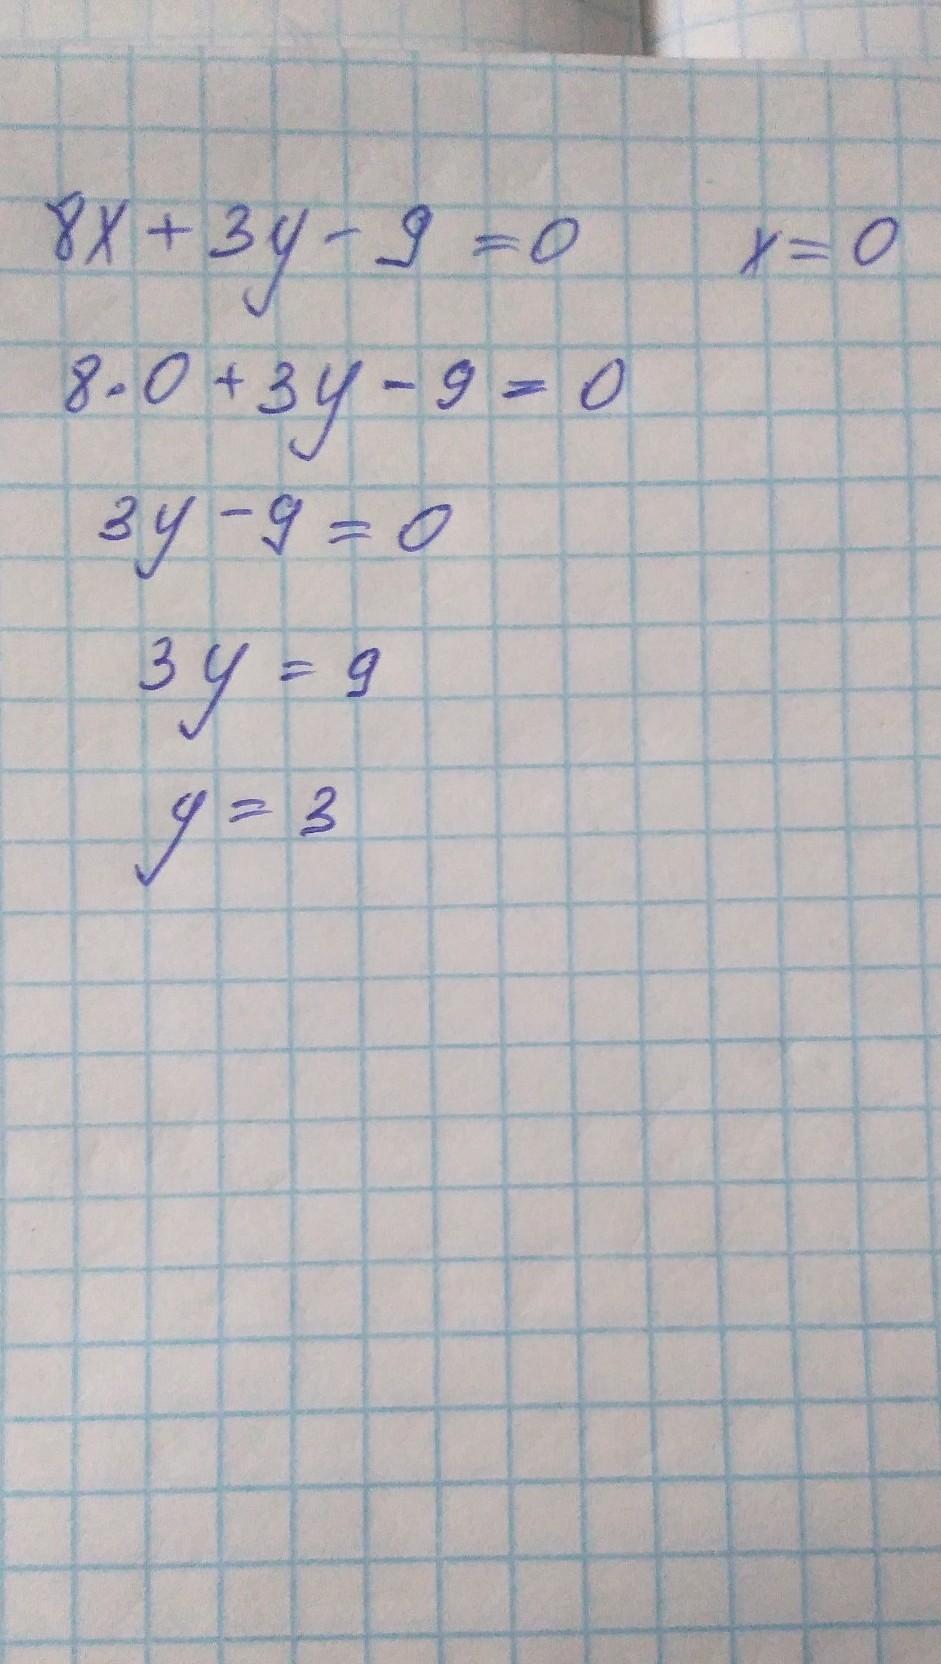 8x + 3y - 9 = 0    x = 0
8·0 + 3y - 9 = 0
3y - 9 = 0
3y = 9
y = 3